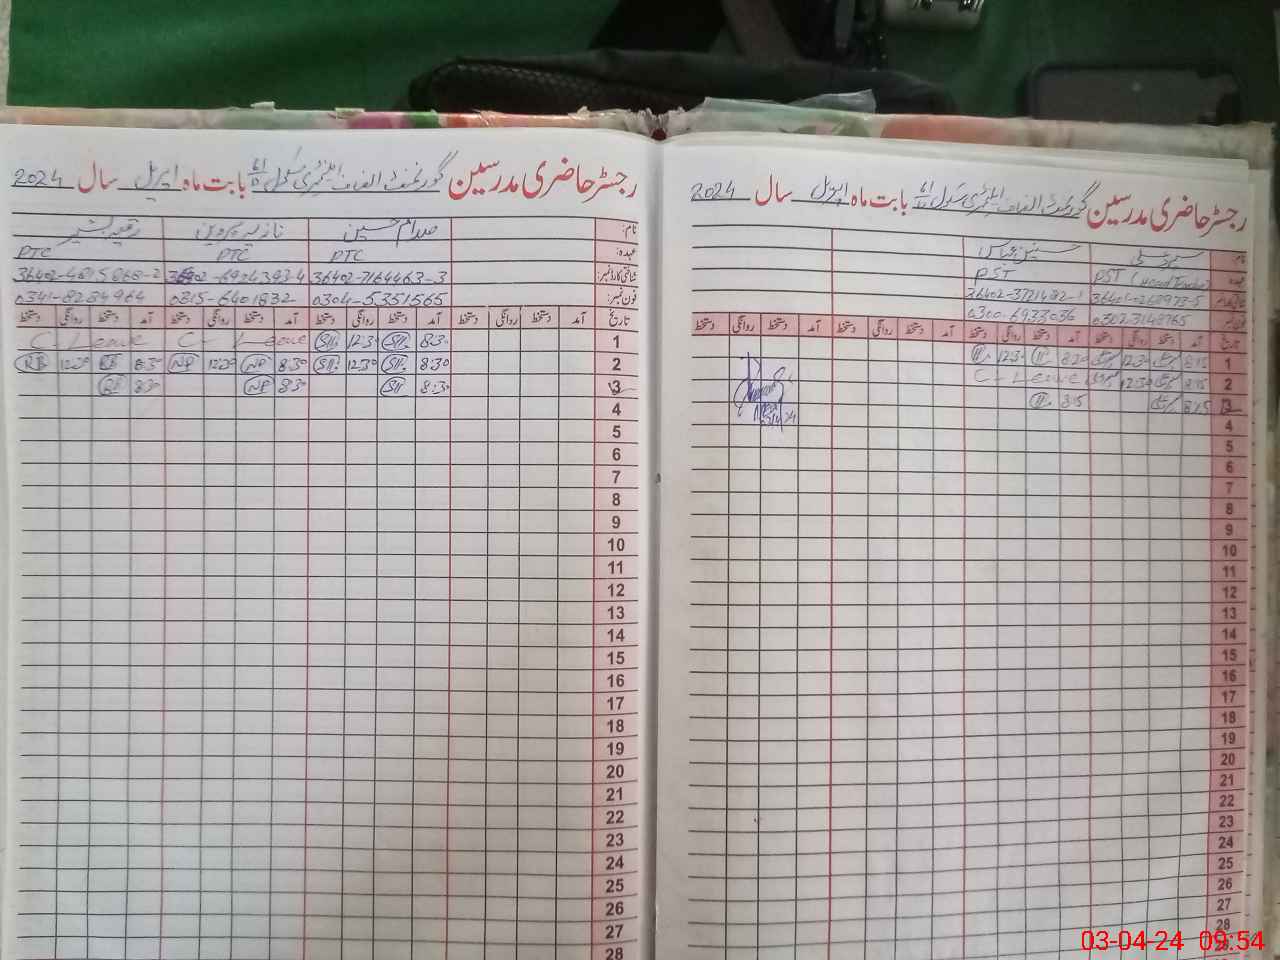 رجسٹر حاضری مدرسین گورنمنٹ الف ایلیمنٹری سکول 61/D بابت ماہ اپریل سال 2024
نام: صدام حسین نازیہ پروین رقیہ بشیر
عہدہ: PTC PTC PTC
شناختی کارڈ نمبر: 36402-7164463-3
فون نمبر: 0304-5351565 0315-6401832 0341-8234964
تاریخ آمد دستخط روانگی دستخط آمد دستخط روانگی دستخط آمد دستخط روانگی دستخط آمد دستخط روانگی دستخط
1 8:30 SH 12:30 SH C-Leave C-Leave
2 8:30 SH 12:30 SH 8:30 NP 12:30 NP 8:30 RB 12:30 RB
3 8:30 SH 8:30 NP 8:30 RB
4
5
6
7
8
9
10
11
12
13
14
15
16
17
18
19
20
21
22
23
24
25
26
27
28
رجسٹر حاضری مدرسین گورنمنٹ الف ایلیمنٹری سکول 61/D بابت ماہ اپریل سال 2024
نام
عہدہ PST (Head Teacher) PST
36402-3721482-1
0302-3148765 0300-6933036
تاریخ آمد دستخط روانگی دستخط آمد دستخط روانگی دستخط آمد دستخط روانگی دستخط آمد دستخط روانگی دستخط
1 8:15 12:30 8:30 12:30
2 8:15 12:30 C-Leave
3 8:15 8:15
4
5
6
7
8
9
10
11
12
13
14
15
16
17
18
19
20
21
22
23
24
25
26
27
28
03-04-24 09:54